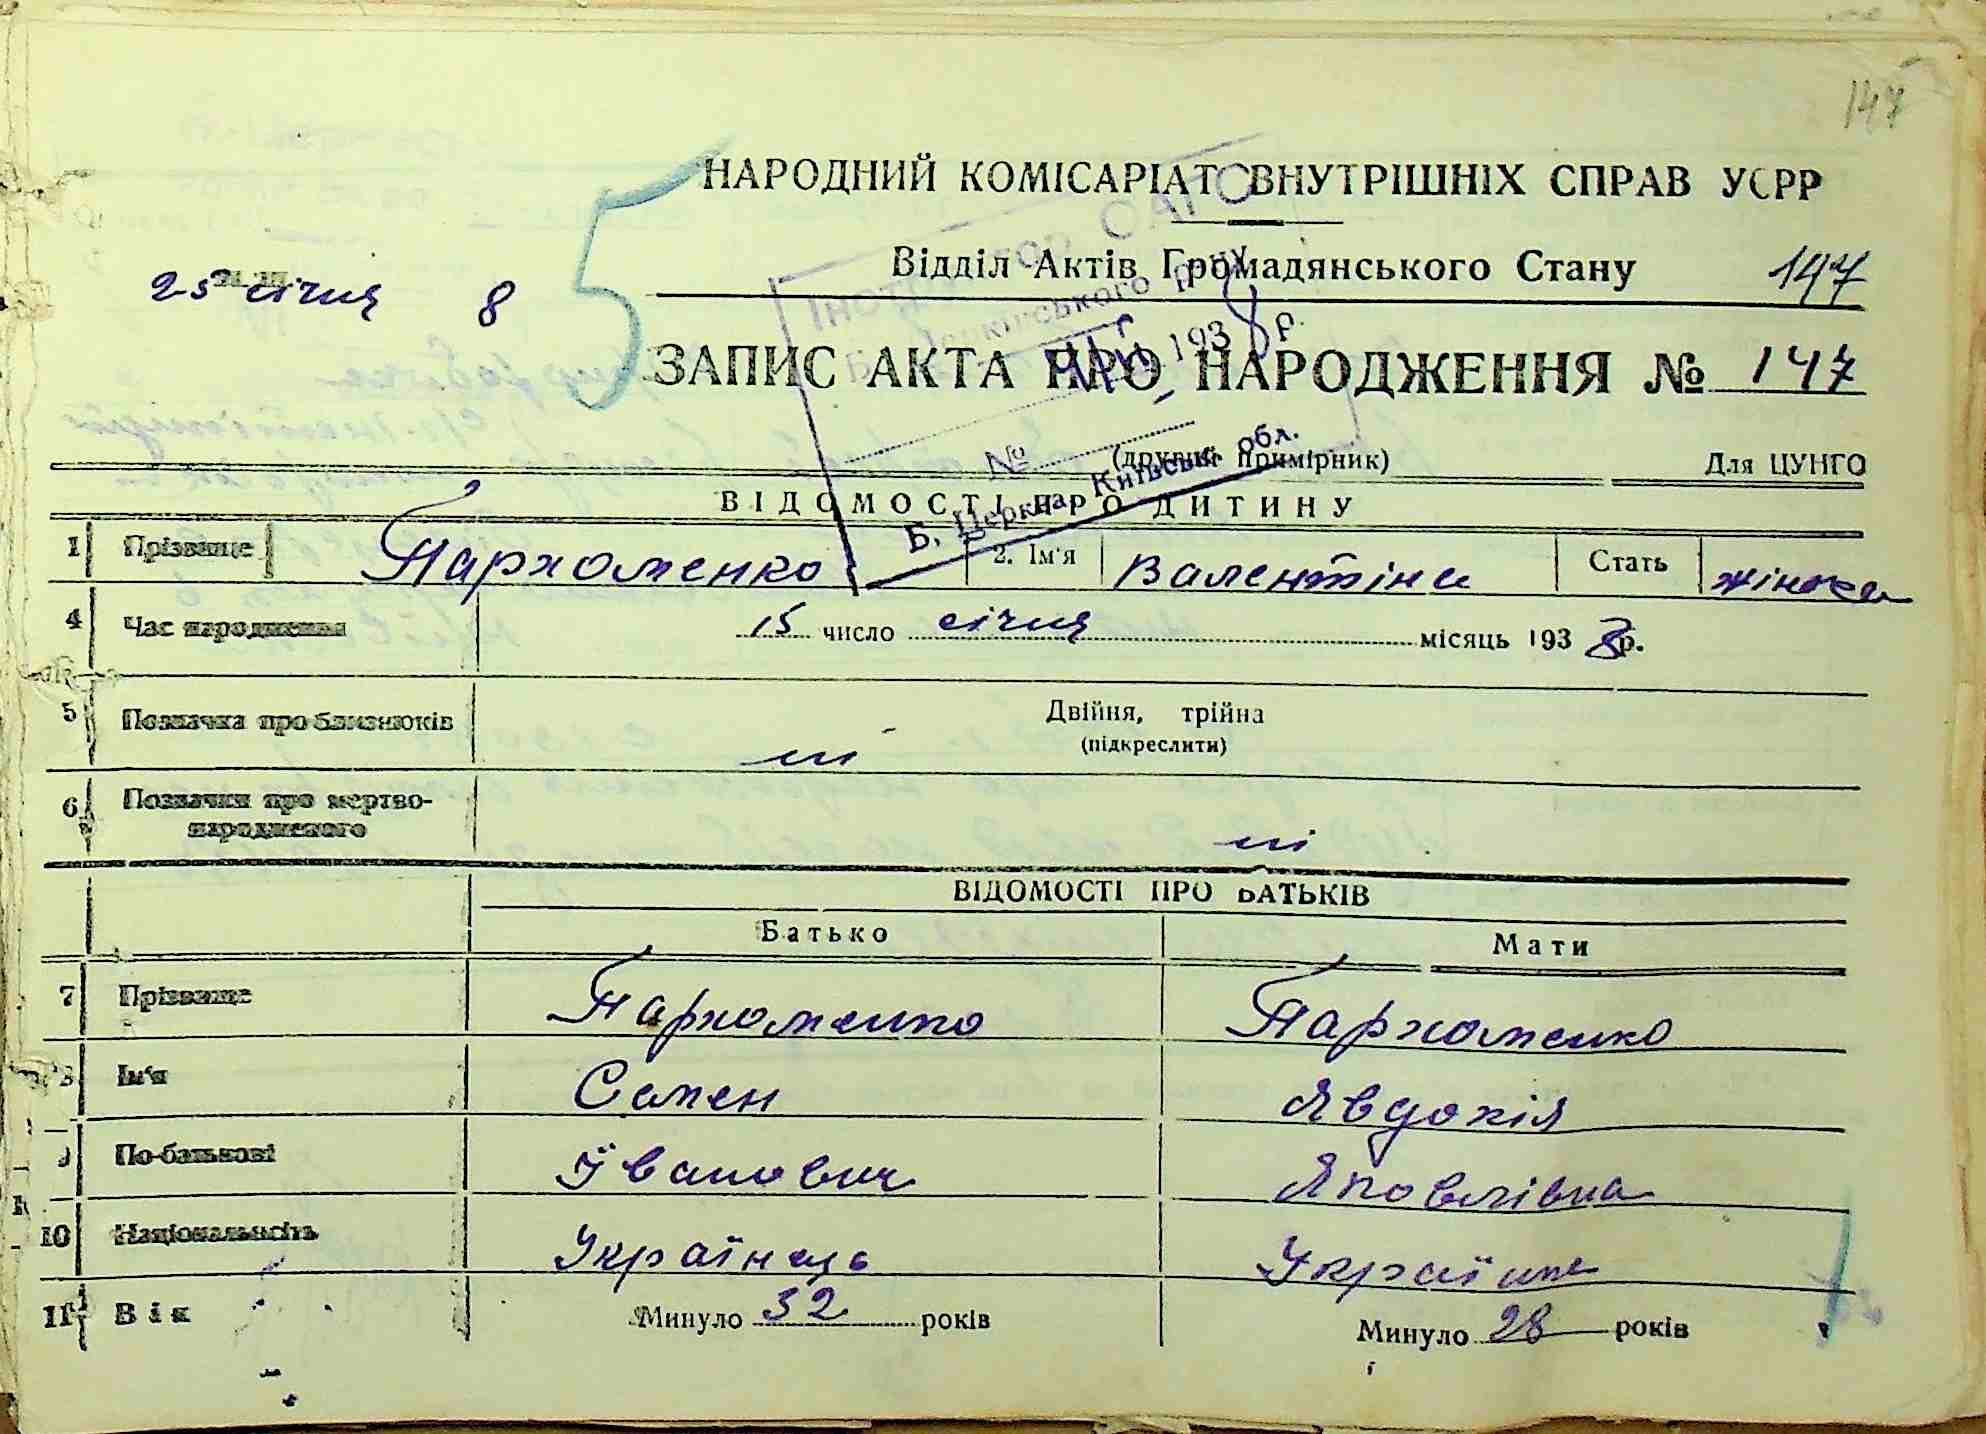 147
НАРОДНИЙ КОМІСАРІАТ ВНУТРІШНІХ СПРАВ УСРР
Відділ Актів Громадянського Стану 147
25 січня 8 5
ЗАПИС АКТА ПРО НАРОДЖЕННЯ № 147
Інспектор ОАГС
1938 р.
№
Б. Церква, Київськ. обл.
(другий примірник) Для ЦУНГО
ВІДОМОСТІ ПРО ДИТИНУ
1 Прізвище Пархоменко 2. Ім'я Валентіна Стать жіноча
4 Час народження 15 число січня місяць 1938 р.
5 Позначка про близнюків Двійня, трійна
(підкреслити)
ні
6 Позначки про мертво-
народженого ні
ВІДОМОСТІ ПРО БАТЬКІВ
Батько Мати
7 Прізвище Пархоменко Пархоменко
8 Ім'я Семен Явдокія
9 По-батькові Іванович Яковлівна
10 Національність Українець Українка
11 Вік Минуло 32 років Минуло 28 років